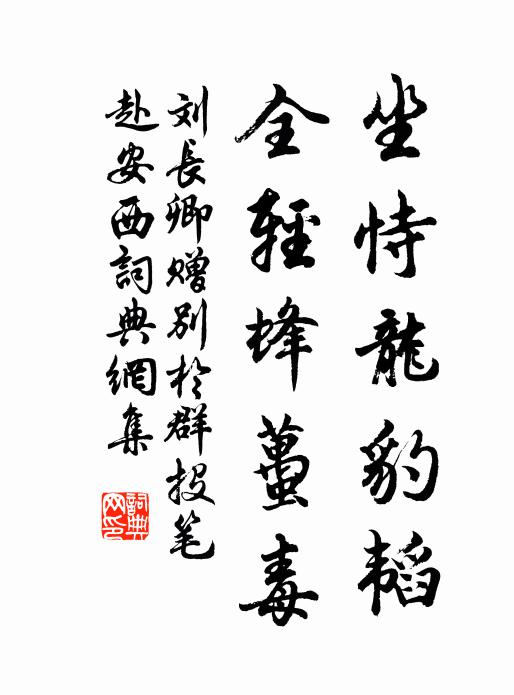 坐恃龍豹韬
全輕蜂蠆毒
刘長卿赠别於群投笔
赴安西詞典網集
詞典网印